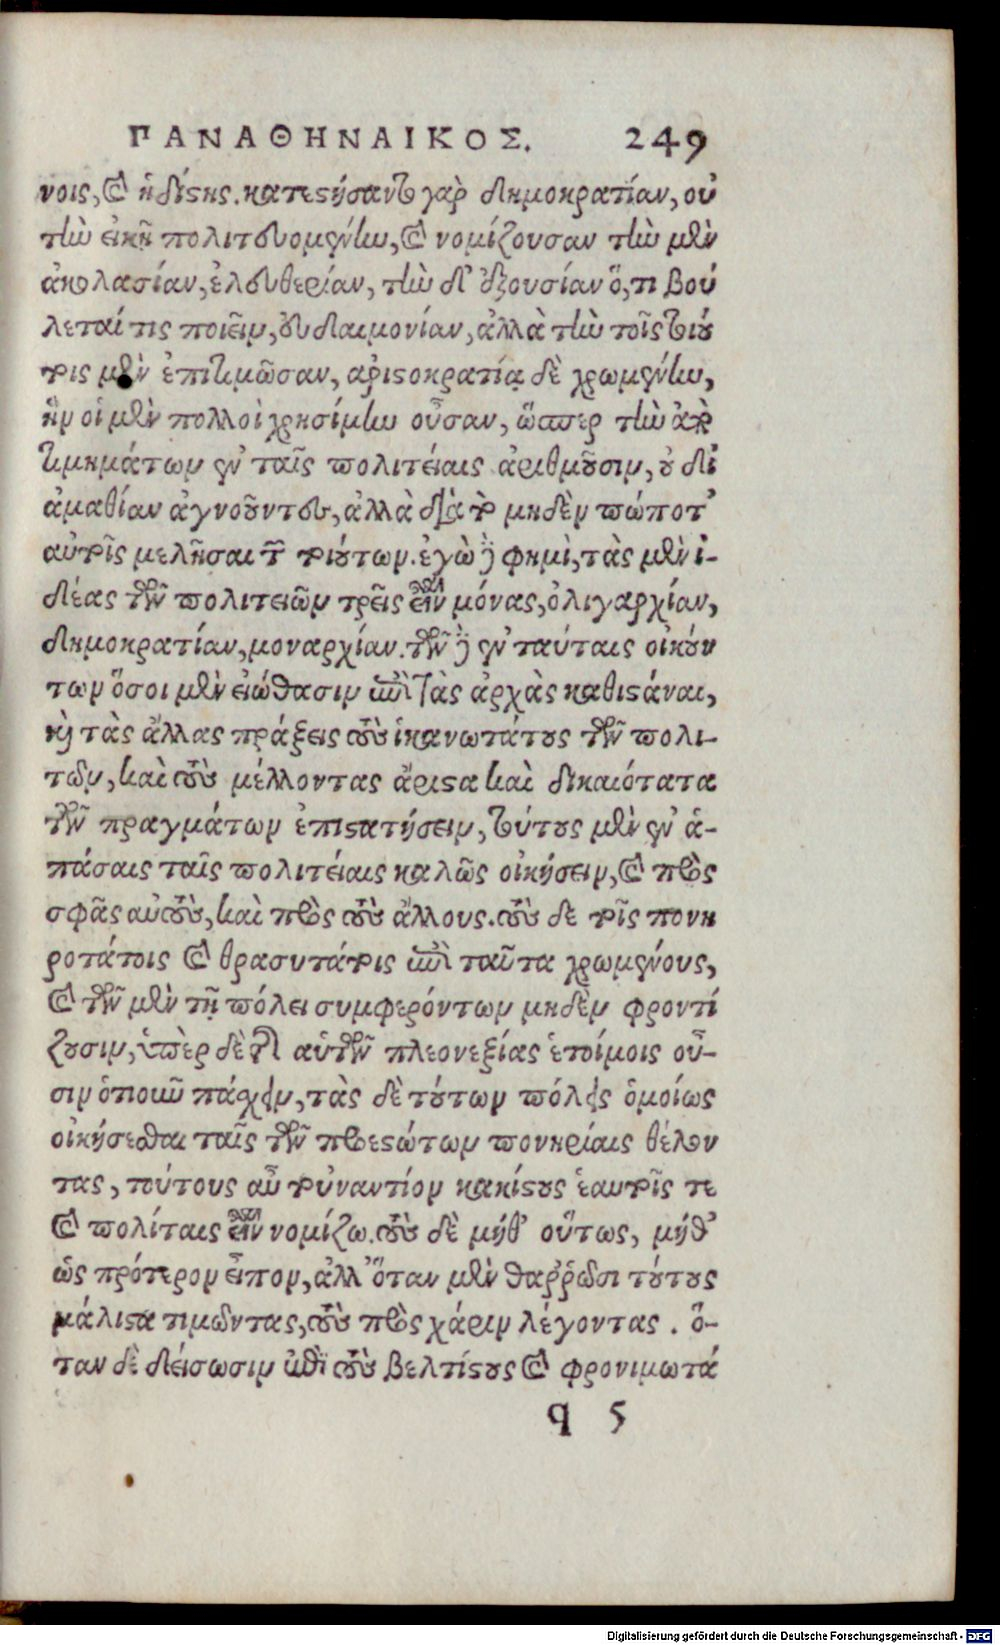 ΠΑΝΑΘΗΝΑΙΚΟΣ. 249
νοις, καὶ ἡδίστης. κατεστήσαντο γὰρ δημοκρατίαν, οὐ
τὴν εἰκῇ πολιτευομένην, καὶ νομίζουσαν τὴν μὲν
ἀκολασίαν, ἐλευθερίαν, τὴν δ' ἐξουσίαν ὅ,τι βού
λεταί τις ποιεῖν, εὐδαιμονίαν, ἀλλὰ τὴν τοῖς τοιού
τοις μὲν ἐπιτιμῶσαν, ἀριστοκρατίᾳ δὲ χρωμένην,
ἣν οἱ μὲν πολλοὶ χρησίμην οὖσαν, ὥσπερ τὴν ἀπὸ
τιμημάτων ἐν ταῖς πολιτείαις ἀριθμοῦσιν, οὐ δι'
ἀμαθίαν ἀγνοοῦντες, ἀλλὰ διὰ τὸ μηδὲν πώποτ'
αὐτοῖς μελῆσαι τῶν τοιούτων. ἐγὼ δέ φημι, τὰς μὲν ἰ-
δέας τῶν πολιτειῶν τρεῖς εἶναι μόνας, ὀλιγαρχίαν,
δημοκρατίαν, μοναρχίαν. τῶν δ' ἐν ταύταις οἰκούν
των ὅσοι μὲν εἰώθασιν ἐπὶ τὰς ἀρχὰς καθιστάναι,
καὶ τὰς ἄλλας πράξεις τοὺς ἱκανωτάτους τῶν πολι-
τῶν, καὶ τοὺς μέλλοντας ἄριστα καὶ δικαιότατα
τῶν πραγμάτων ἐπιστατήσειν, τούτους μὲν ἐν ἁ-
πάσαις ταῖς πολιτείαις καλῶς οἰκήσειν, καὶ πρὸς
σφᾶς αὐτοὺς, καὶ πρὸς τοὺς ἄλλους. τοὺς δὲ τοῖς πονη
ροτάτοις καὶ θρασυτάτοις ἐπὶ ταῦτα χρωμένους,
καὶ τῶν μὲν τῇ πόλει συμφερόντων μηδὲν φροντί
ζουσιν, ὑπὲρ δὲ τῆς αὑτῶν πλεονεξίας ἑτοίμοις οὖ-
σιν ὁτιοῦν πάσχειν, τὰς δὲ τούτων πόλεις ὁμοίως
οἰκήσεσθαι ταῖς τῶν προεστώτων πονηρίαις θέλον
τας, τούτους αὖ τοὐναντίον κακίστους ἑαυτοῖς τε
καὶ πολίταις εἶναι νομίζω. τοὺς δὲ μήθ' οὕτως, μήθ'
ὡς πρότερον εἶπον, ἀλλ' ὅταν μὲν θαῤῥῶσι τούτους
μάλιστα τιμῶντας, τοὺς πρὸς χάριν λέγοντας. ὅ-
ταν δὲ δείσωσιν ἐπὶ τοὺς βελτίστους καὶ φρονιμωτά
q 5
Digitalisierung gefördert durch die Deutsche Forschungsgemeinschaft - DFG